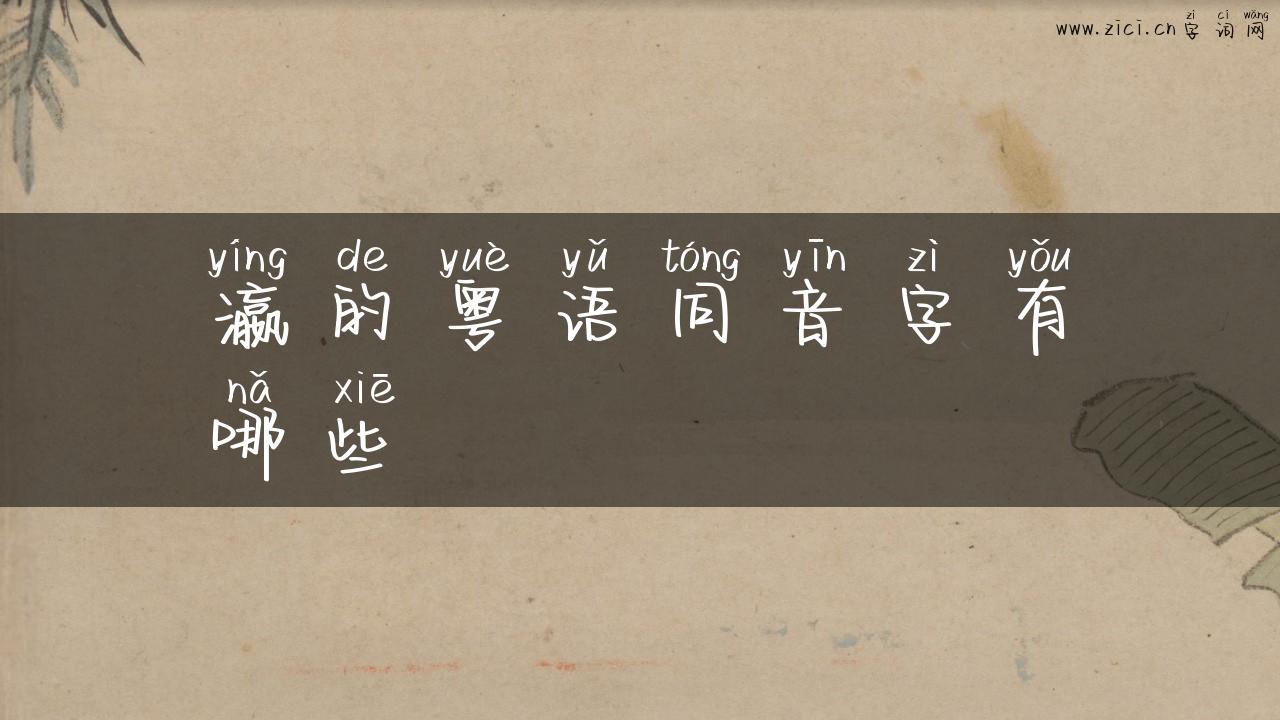 zì cí wǎng
www.zici.cn 字 词 网
yíng de yuè yǔ tóng yīn zì yǒu
瀛 的 粤 语 同 音 字 有
nǎ xiē
哪 些